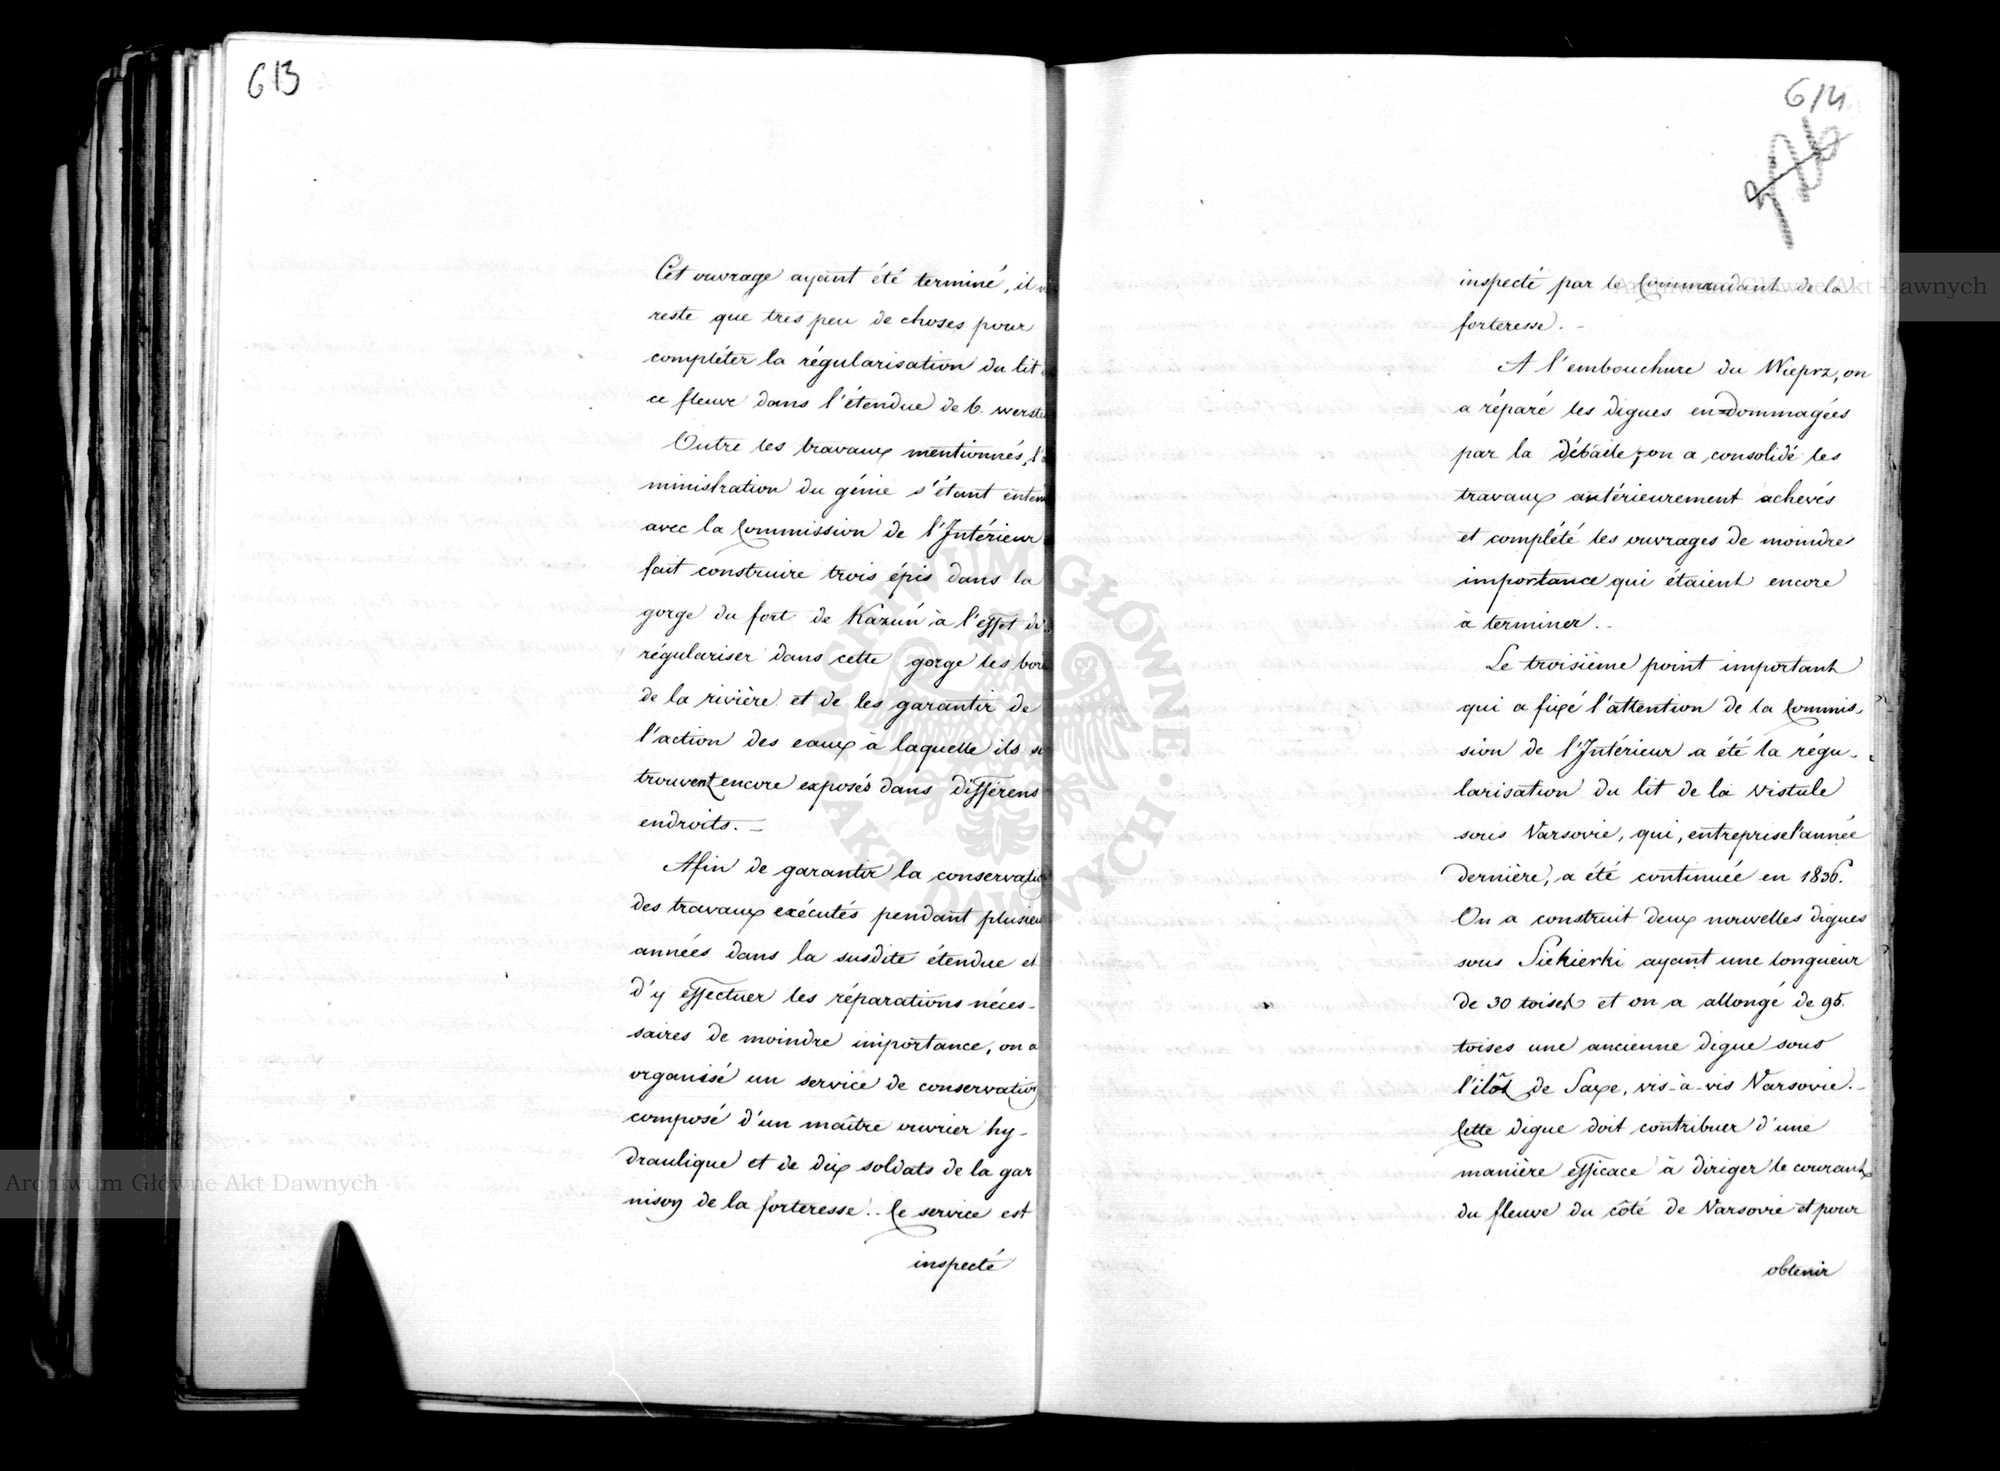 613
Cet ouvrage ayant été terminé, il
reste que tres peu de choses pour
compléter la régularisation du lit
ce fleuve dans l'étendue de 6. werste
Outre les travaux mentionnés, l'
ministration du génie s'étant enten
avec la Commission de l'Intérieur
fait construire trois épis dans la
gorge du fort de Kazuń à l'effet de
régulariser dans cette gorge les bor
de la rivière et de les garantir de
l'action des eaux à laquelle ils s
trouvent encore exposés dans différens
endroits. —
Afin de garantir la conservatio
des travaux exécutés pendant plusieu
années dans la susdite étendue et
d'y effectuer les réparations néces-
saires de moindre importance, on a
organisé un service de conservation
composé d'un maître ouvrier hy-
draulique et de dix soldats de la gar
nison de la forteresse. Ce service est
inspecté
614
inspecté par le Commandant de la
forteresse. -
A l'embouchure du Wieprz, on
a réparé les digues endommagées
par la débâcle, on a consolidé les
travaux antérieurement achevés
et complété les ouvrages de moindre
importance qui étaient encore
à terminer. -
Le troisième point important
qui a fixé l'attention de la Commis-
sion de l'Intérieur a été la régu-
larisation du lit de la Vistule
sous Varsovie, qui, entreprise l'année
dernière, a été continuée en 1836.
On a construit deux nouvelles digues
sous Siekierki ayant une longueur
de 30 toises et on a allongé de 95.
toises une ancienne digue sous
l'ilôt de Saxe, vis-à-vis Varsovie. -
Cette digue doit contribuer d'une
manière efficace à diriger le courant
du fleuve du côté de Varsovie et pour
obtenir
Archiwum Główne Akt Dawnych
Archiwum Główne Akt Dawnych
ARCHIWUM GŁÓWNE AKT DAWNYCH